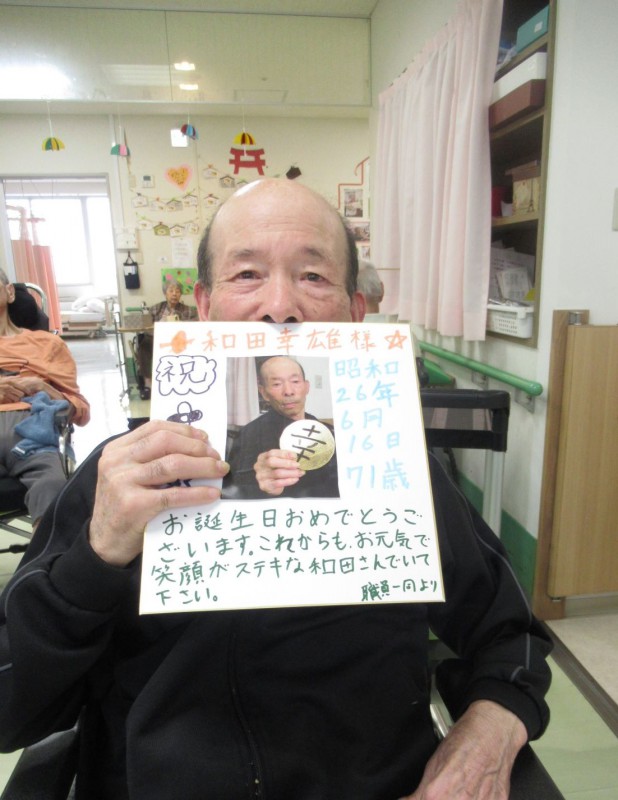 和田幸雄様
祝
幸
昭和
26年
6月
16日
71歳
お誕生日おめでとうご
ざいます。これからも、お元気で
笑顔がステキな和田さんでいて
下さい。
職員一同より